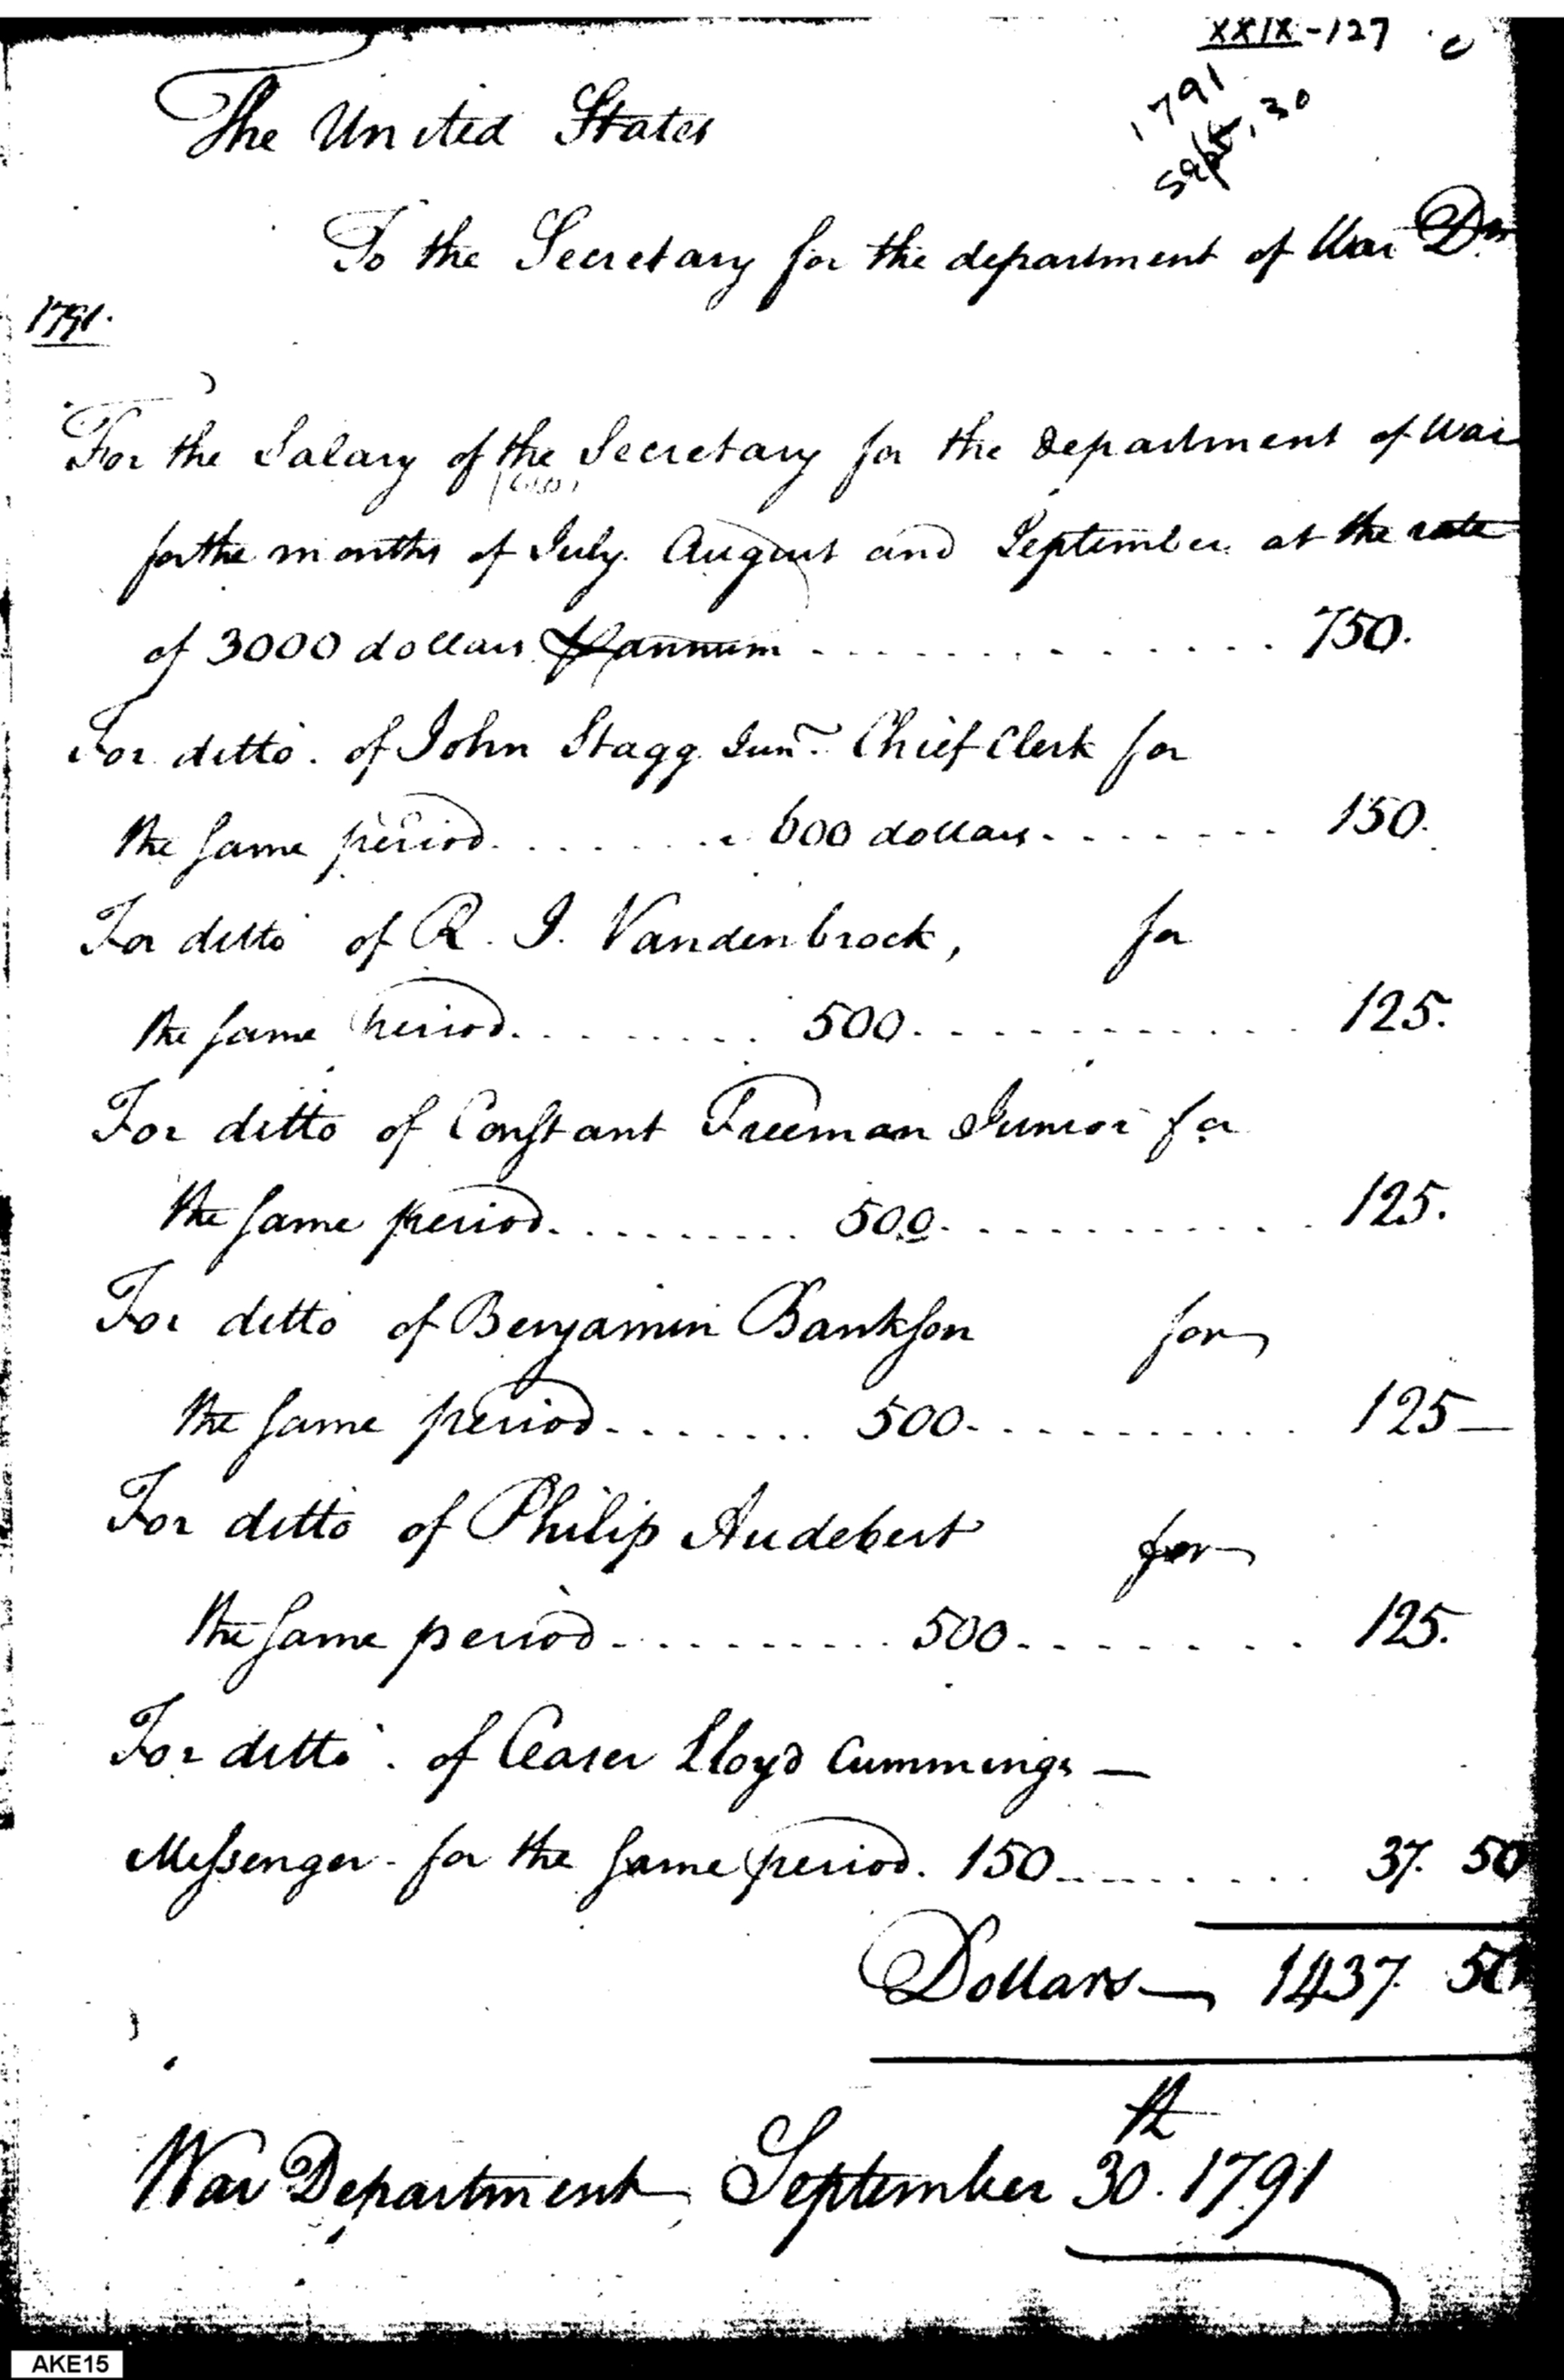 XXIX-127
1791
Sept, 30
The United States
To the Secretary for the department of War Dr.
1791.
For the Salary of the Secretary for the department of War
for the months of July. August and September at the rate
of 3000 dollars ⅌ annum 750.
For ditto. of John Stagg Junr. Chief Clerk for
the same period 600 dollars 150.
For ditto of R. J. Vandenbrock, for
the same period 500 125.
For ditto of Constant Freeman Junior for
the same period 500 125.
For ditto of Benjamin Bankson for
the same period 500 125—
For ditto of Philip Audebert for
the same period 500 125.
For ditto. of Ceaser Lloyd Cummings —
Messenger - for the same period. 150 37. 50
Dollars— 1437. 50
War Department September 30th. 1791
AKE15